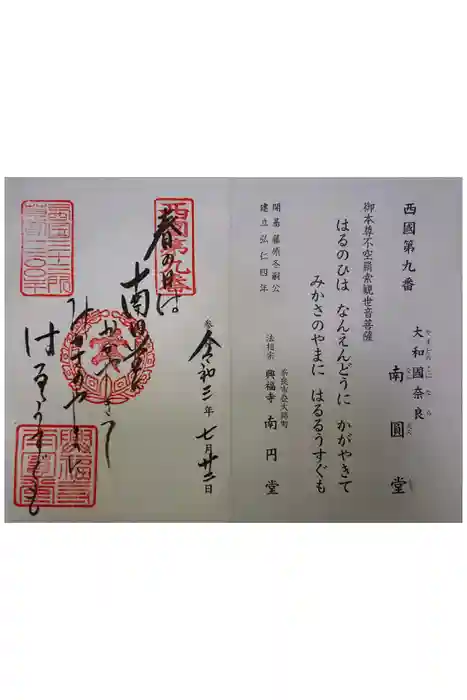 西國第九番
大和國奈良
やまとのくになら
南圓堂
御本尊不空羂索観世音菩薩
はるのひは なんえんどうに かがやきて
みかさのやまに はるるうすぐも
開基 藤原冬嗣公
建立 弘仁四年
奈良市登大路町
法相宗 興福寺 南円堂
西國第九番
春の日は
南円堂に
かゞやきて
みかさのやまに
はるるうすぐも
参 令和三年 七月廿二日